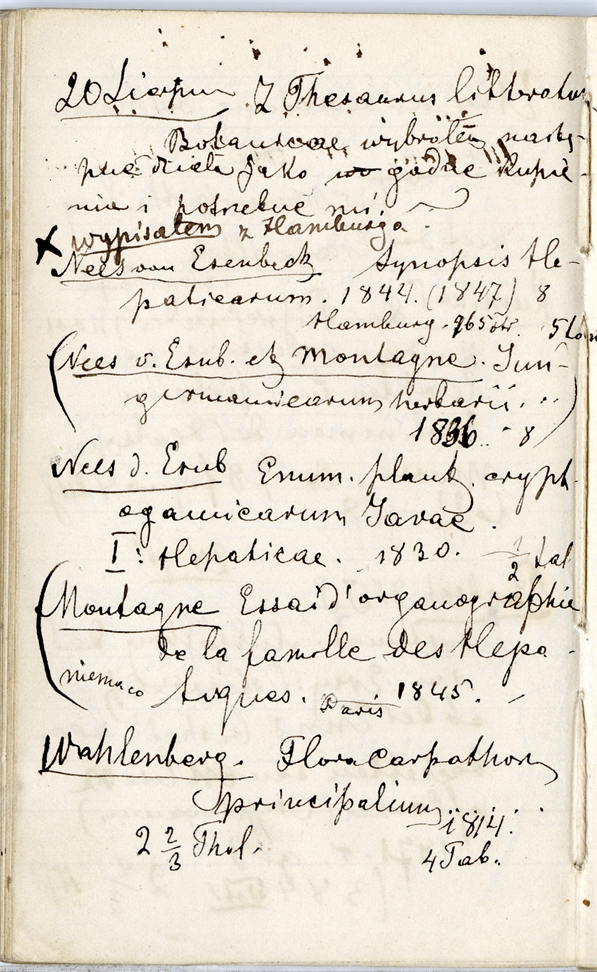 20 Sierpnia Z Thesaurus litteratur
Botanicae wybrałem nastę-
pne dzieła jako godne kupie-
nia i potrzebne mi.
x wypisałem z Hamburga.
Nees von Esenbeck Synopsis He-
paticarum. 1844. (1847) 8
Hamburg. 965 str.
(Nees v. Esnb. et Montagne. Jun-
germanniearum herbarii. ..
1836. 8)
Nees d. Esnb Enum. plant. crypt
ogamicarum Javae.
I: Hepaticae. 1830. 1/2 tal
(Montagne Essai d'organographie
de la famille des Hepa-
niema co tiques. Paris 1845. -
Wahlenberg. Flora Carpathor
principalium 1814.
2 2/3 Thal. 4 Tab.